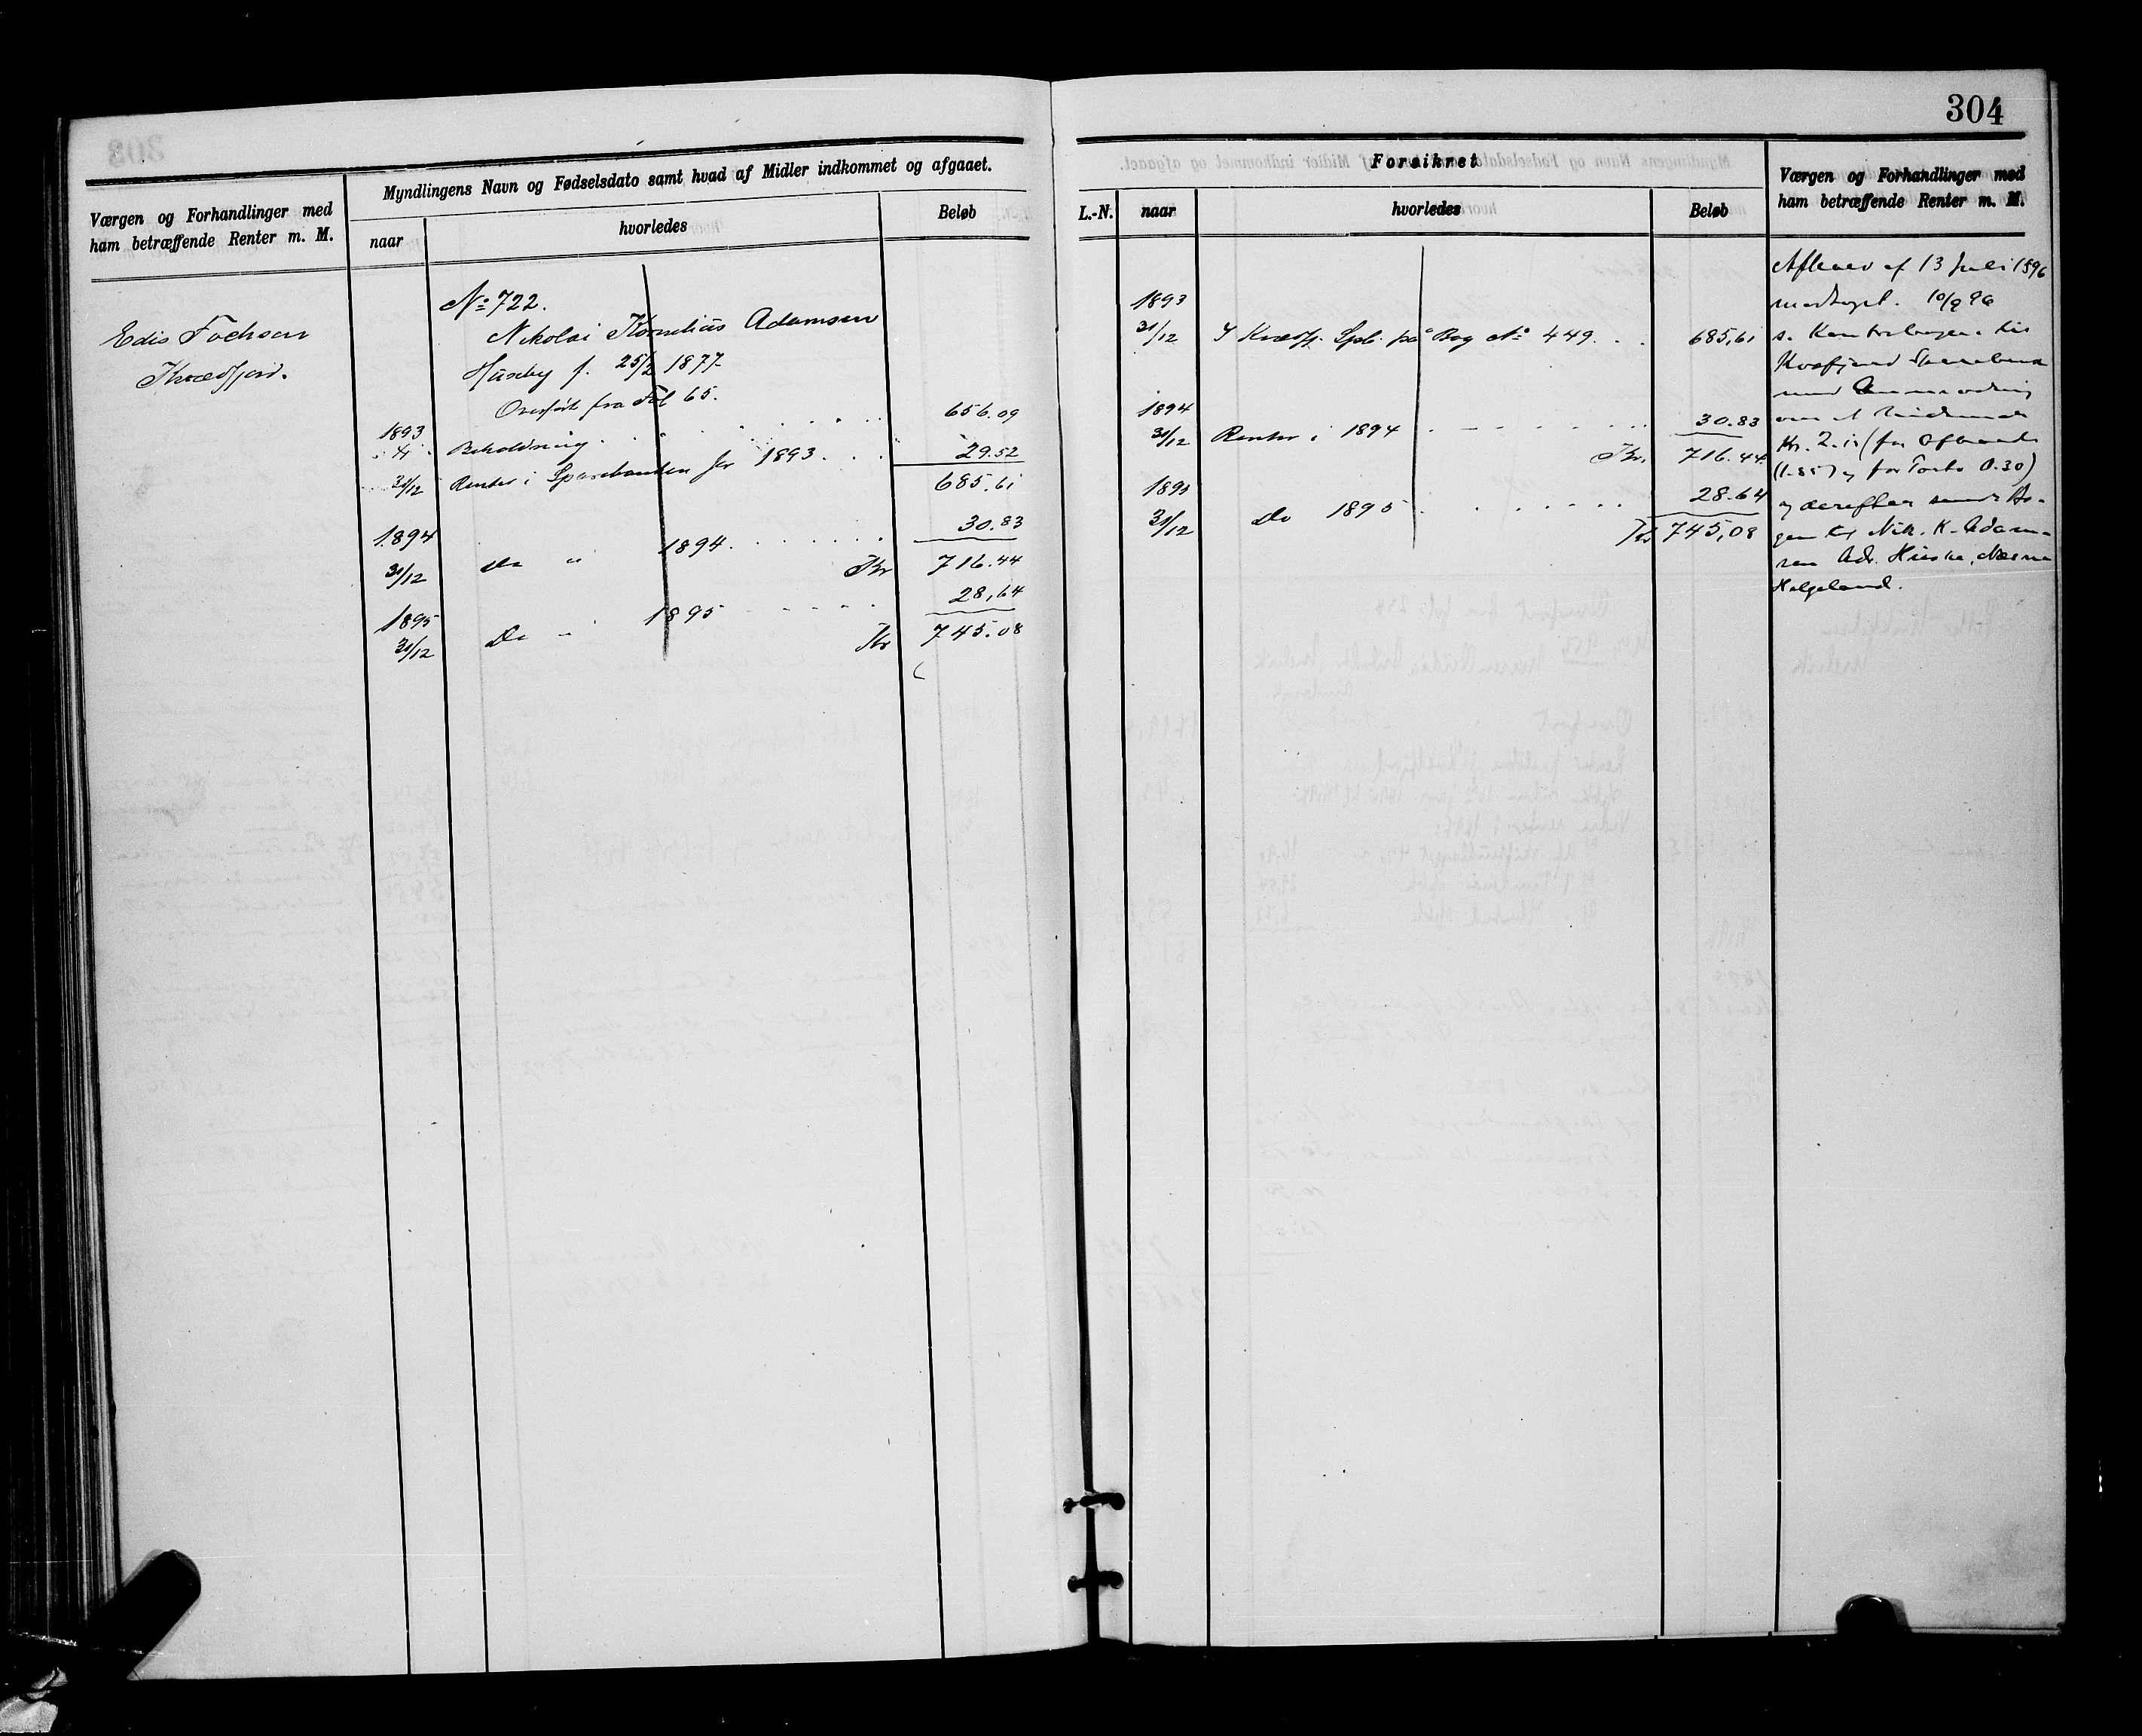 304
Værgen og Forhandlinger med
ham betræffende Renter m. M.
Myndlingens Navn og Fødselsdato samt hvad af Midler indkommet og afgaaet.
naar
hvorledes
Beløb
Edis
Kvædfjord.
No 722.
Nikolai Kornelius Adamsen
Huseby f. 25/2 1877
Overført fra Fol 65.
1893
1/1 Beholdning 656.09
31/12 Renter i Sparebanken for 1893 . . . 29.52
685.61
1894
31/12 Do " 1894 . . . . . . 30.83
Kr 716.44
1895
31/12 Do " 1895 - - - - - 28,64
Kr 745.08
Forsikret
L.-N.
naar
hvorledes
Beløb
Værgen og Forhandlinger med
ham betræffende Renter m. M.
1893
31/12 I Kvædfj. Spb. på Bog No 449 . . . 685,61
1894
31/12 Renter i 1894 . - - - . . . 30.83
Kr. 716.44
1895
31/12 Do 1895 . . . . . . . 28.64
Kr 745,08
af 13 Juli 1896
modtaget. 10/9 96
s. Kontrabogen til
Kvæfjord Sparebank
med Anmodning
om at
Kr. 2.15 (for
(1.85) og for Porto 0.30)
og derefter sende Bo-
gen til Nik. K. Adam-
sen Adr. Næsna
Helgeland.